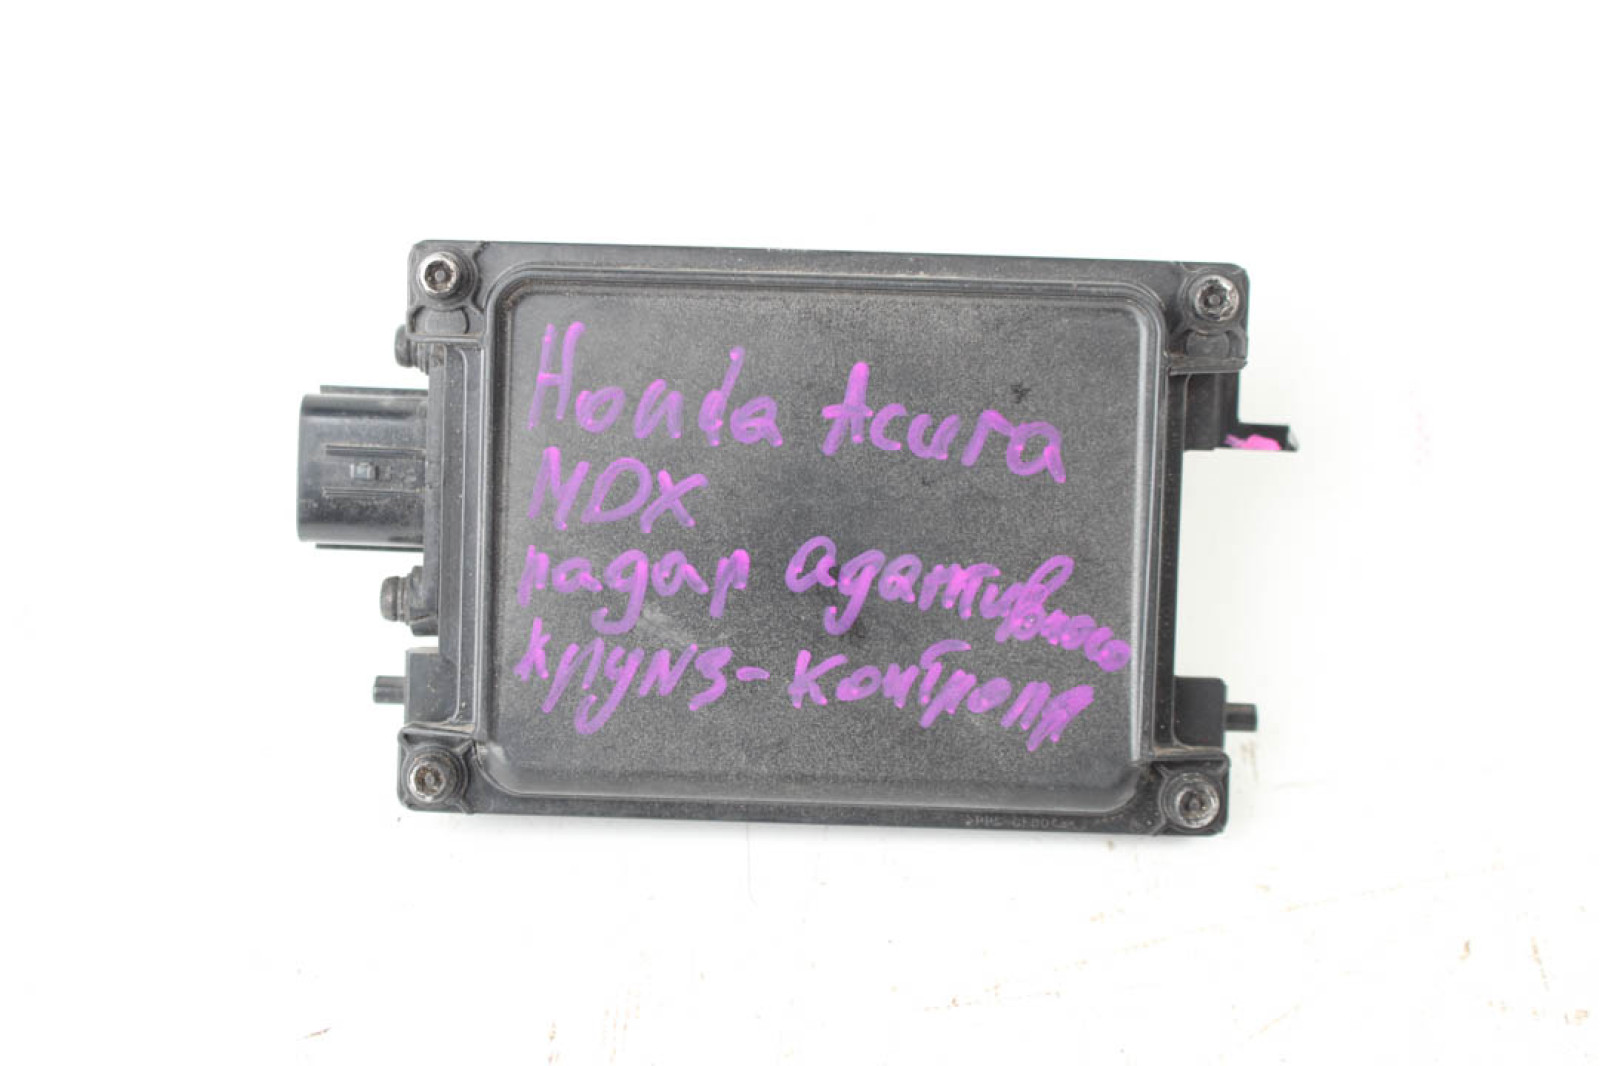 Honda Acura
MDX
радар адаптивного
круиз-контроля